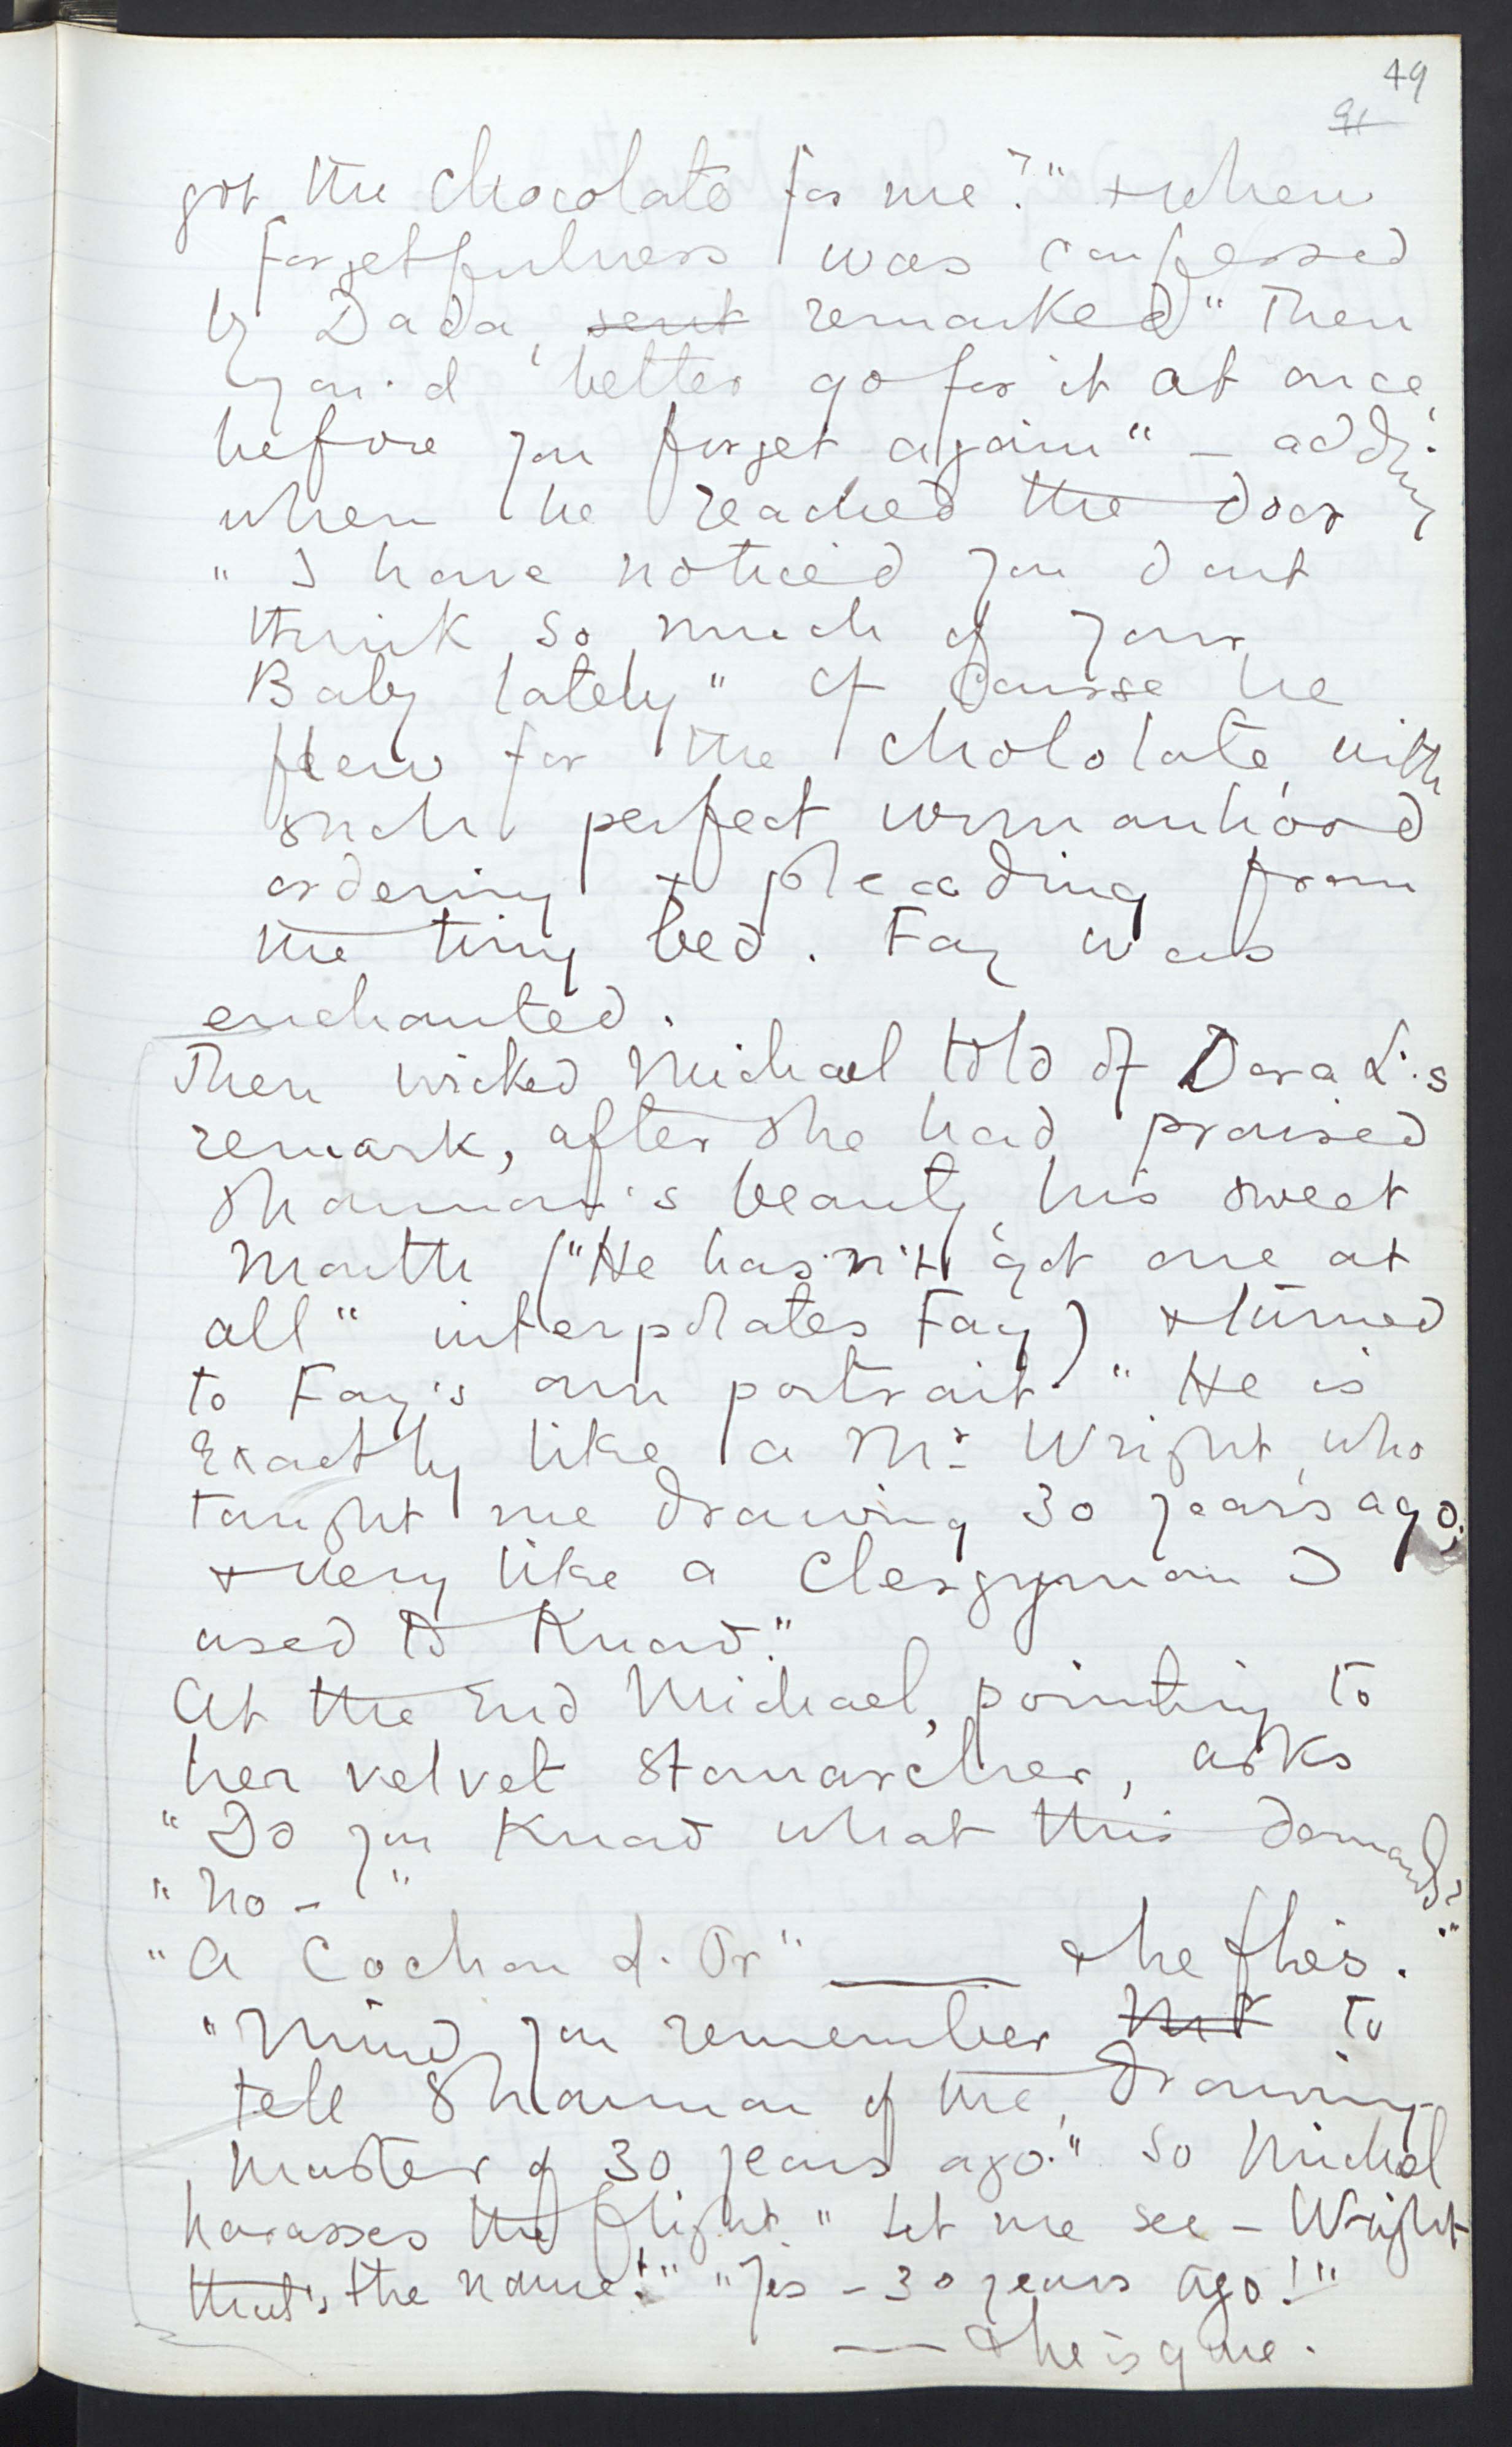 49
91
got the chocolate for me?" & when
forgetfulness was confessed
by Dada, sent remarked "Then
you'd better go for it at once,
before you forget again" – adding
when he reached the door
"I have noticed you dont
think so much of your
Baby lately" Of Course he
flew for the chololate, with
such perfect womanhood
ordering & pleading from
the tiny bed. Fay was
enchanted.
Then wicked Michael told of Dora L's
remark, after she had praised
Shannon's beauty, his sweet
Mouth ("He hasn't got one at
all" interpolates Fay) & turned
to Fay's own portrait. "He is
Exactly like a Mr Wright, who
taught me drawing 30 years ago,
& very like a Clergyman I
used to Know."
At the End Michael, pointing to
her velvet Stomarcher, asks
"Do you Know what this demands?"
"No – "
"A Cochon d'Or" —— & he flies.
"Mind you remember Not to
tell Shannon of the, drawing-
master of 30 years ago." So Michael
harasses the flight. "Let me see – Wright
that's the name!" "Yes – 30 years ago!"
—— & he is gone.